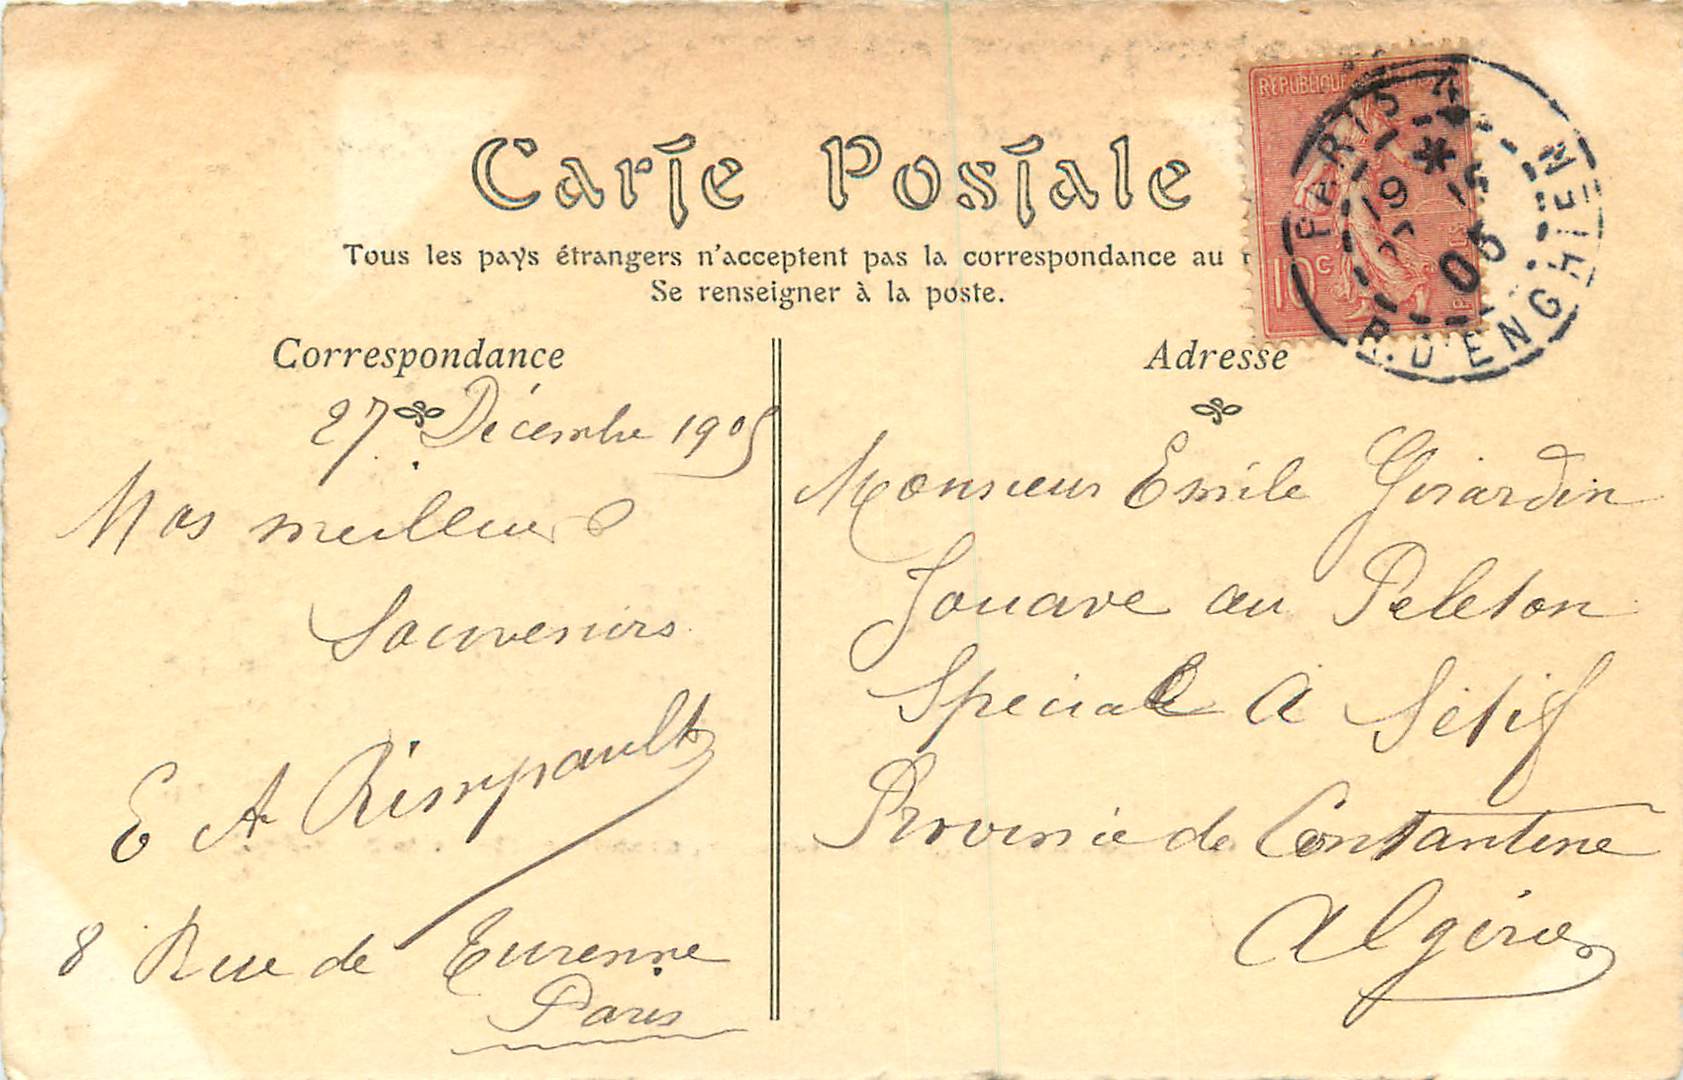 Carte Postale
Tous les pays étrangers n'acceptent pas la correspondance au
Se renseigner à la poste.
Correspondance
27 Décembre 1905
Mes meilleurs
Souvenirs
E A Rimpault
8 Rue de Turenne
Paris
REPUBLIQUE
10 c
PARIS
19
05
R. D'ENGHIEN
Adresse
Monsieur Emile Girardin
Zouave au Peleton
Spécial A Sétif
Province de Constantine
Algérie